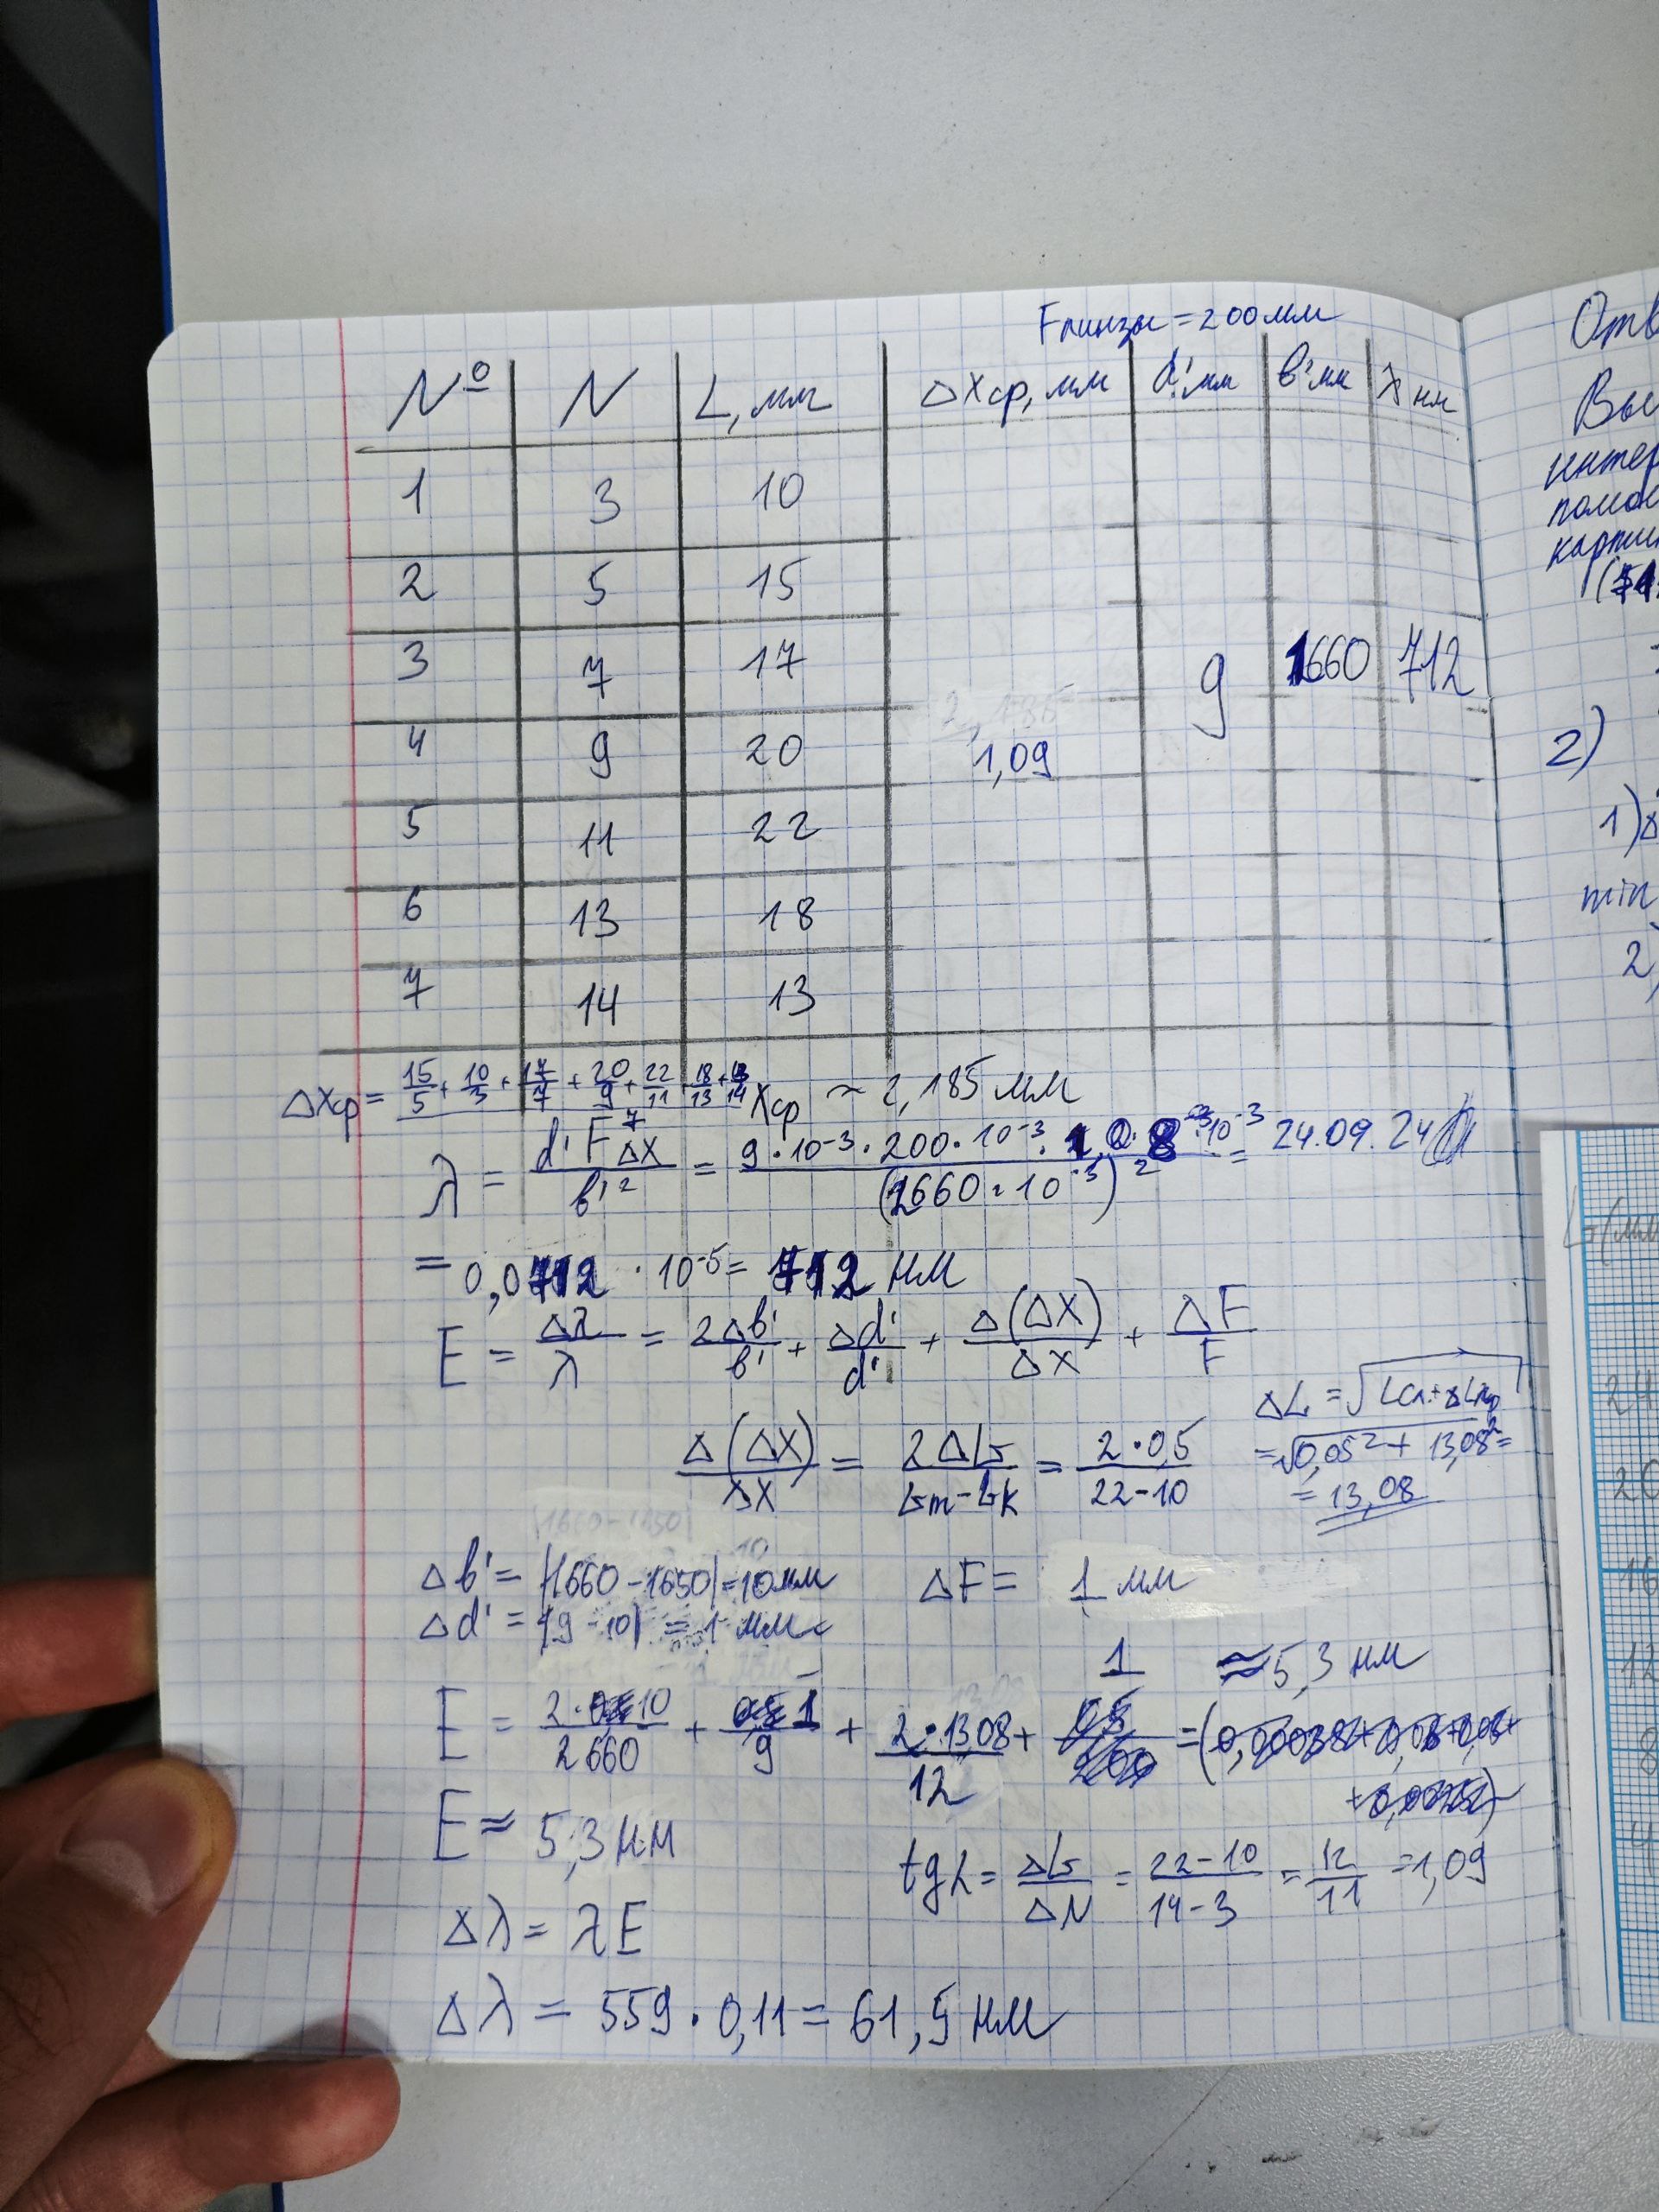 Fлинзы = 200 мм
№ N L, мм ΔXср, мм d', мм b', мм λ нм
1 3 10
2 5 15
3 7 17 9 1660 712
4 9 20 1,09
5 11 22
6 13 18
7 14 13
ΔXср = (15/5 + 10/3 + 17/7 + 20/9 + 22/11 + 18/13 + 13/14)/7 Xср ~ 2,185 мм
λ = d' F ΔX / b'² = 9·10⁻³ · 200·10⁻³ · · 10⁻³ / ( 660·10⁻³)² = 24.09.24
= 0,0712 · 10⁻⁵ = 712 нм
E = Δλ/λ = 2Δb'/b' + Δd'/d' + Δ(ΔX)/ΔX + ΔF/F
Δ(ΔX)/ΔX = 2ΔL/(Lm - Lk) = 2·0,5/(22-10)
ΔL = √
= √0,05² + 13,08² =
= 13,08
Δb' = |1660 - 1650| = 10 мм ΔF = 1 мм
Δd' = |9 - 10| = 1 мм
E = 2·10/2660 + 1/9 + 2·13,08/12 + 1 ≈ 5,3 нм
E ≈ 5,3 нм
tg L = ΔL/ΔN = (22-10)/(14-3) = 12/11 = 1,09
Δλ = λE
Δλ = 559 · 0,11 = 61,5 нм
Отв
интер
2)
1)
min
2)
20
16
12
8
4